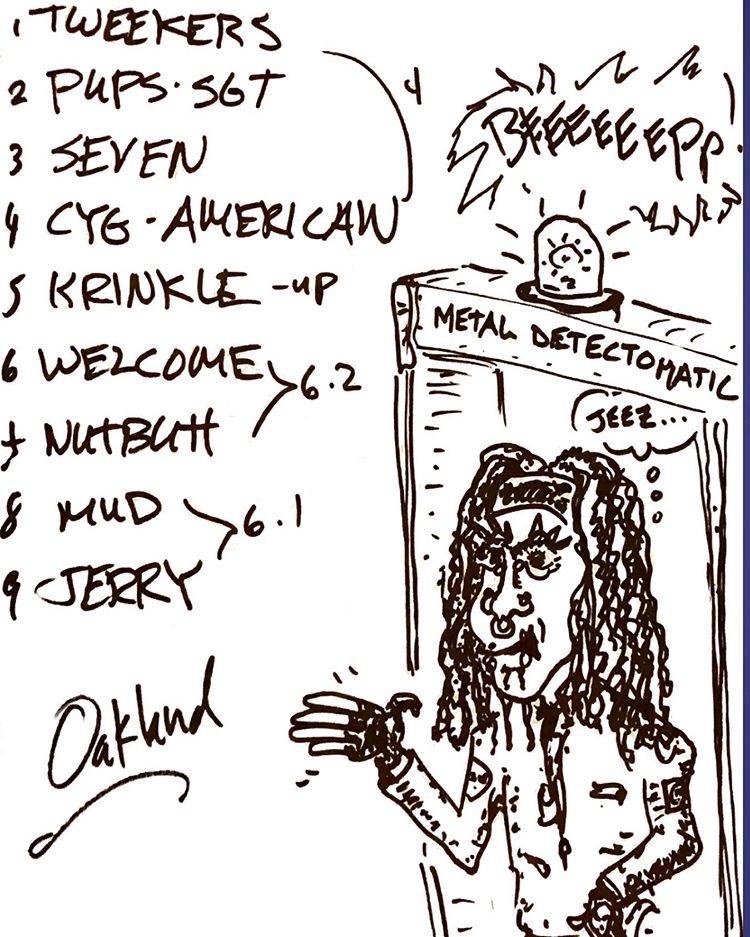 1 TWEEKERS
2 PUPS·SGT
3 SEVEN
4
4 CYG-AMERICAN
5 KRINKLE-UP
6 WELCOME
6.2
7 NUTBUH
8 MUD
6.1
9 JERRY
Oaklund
BEEEEEEPP
METAL DETECTOMATIC
JEEZ...